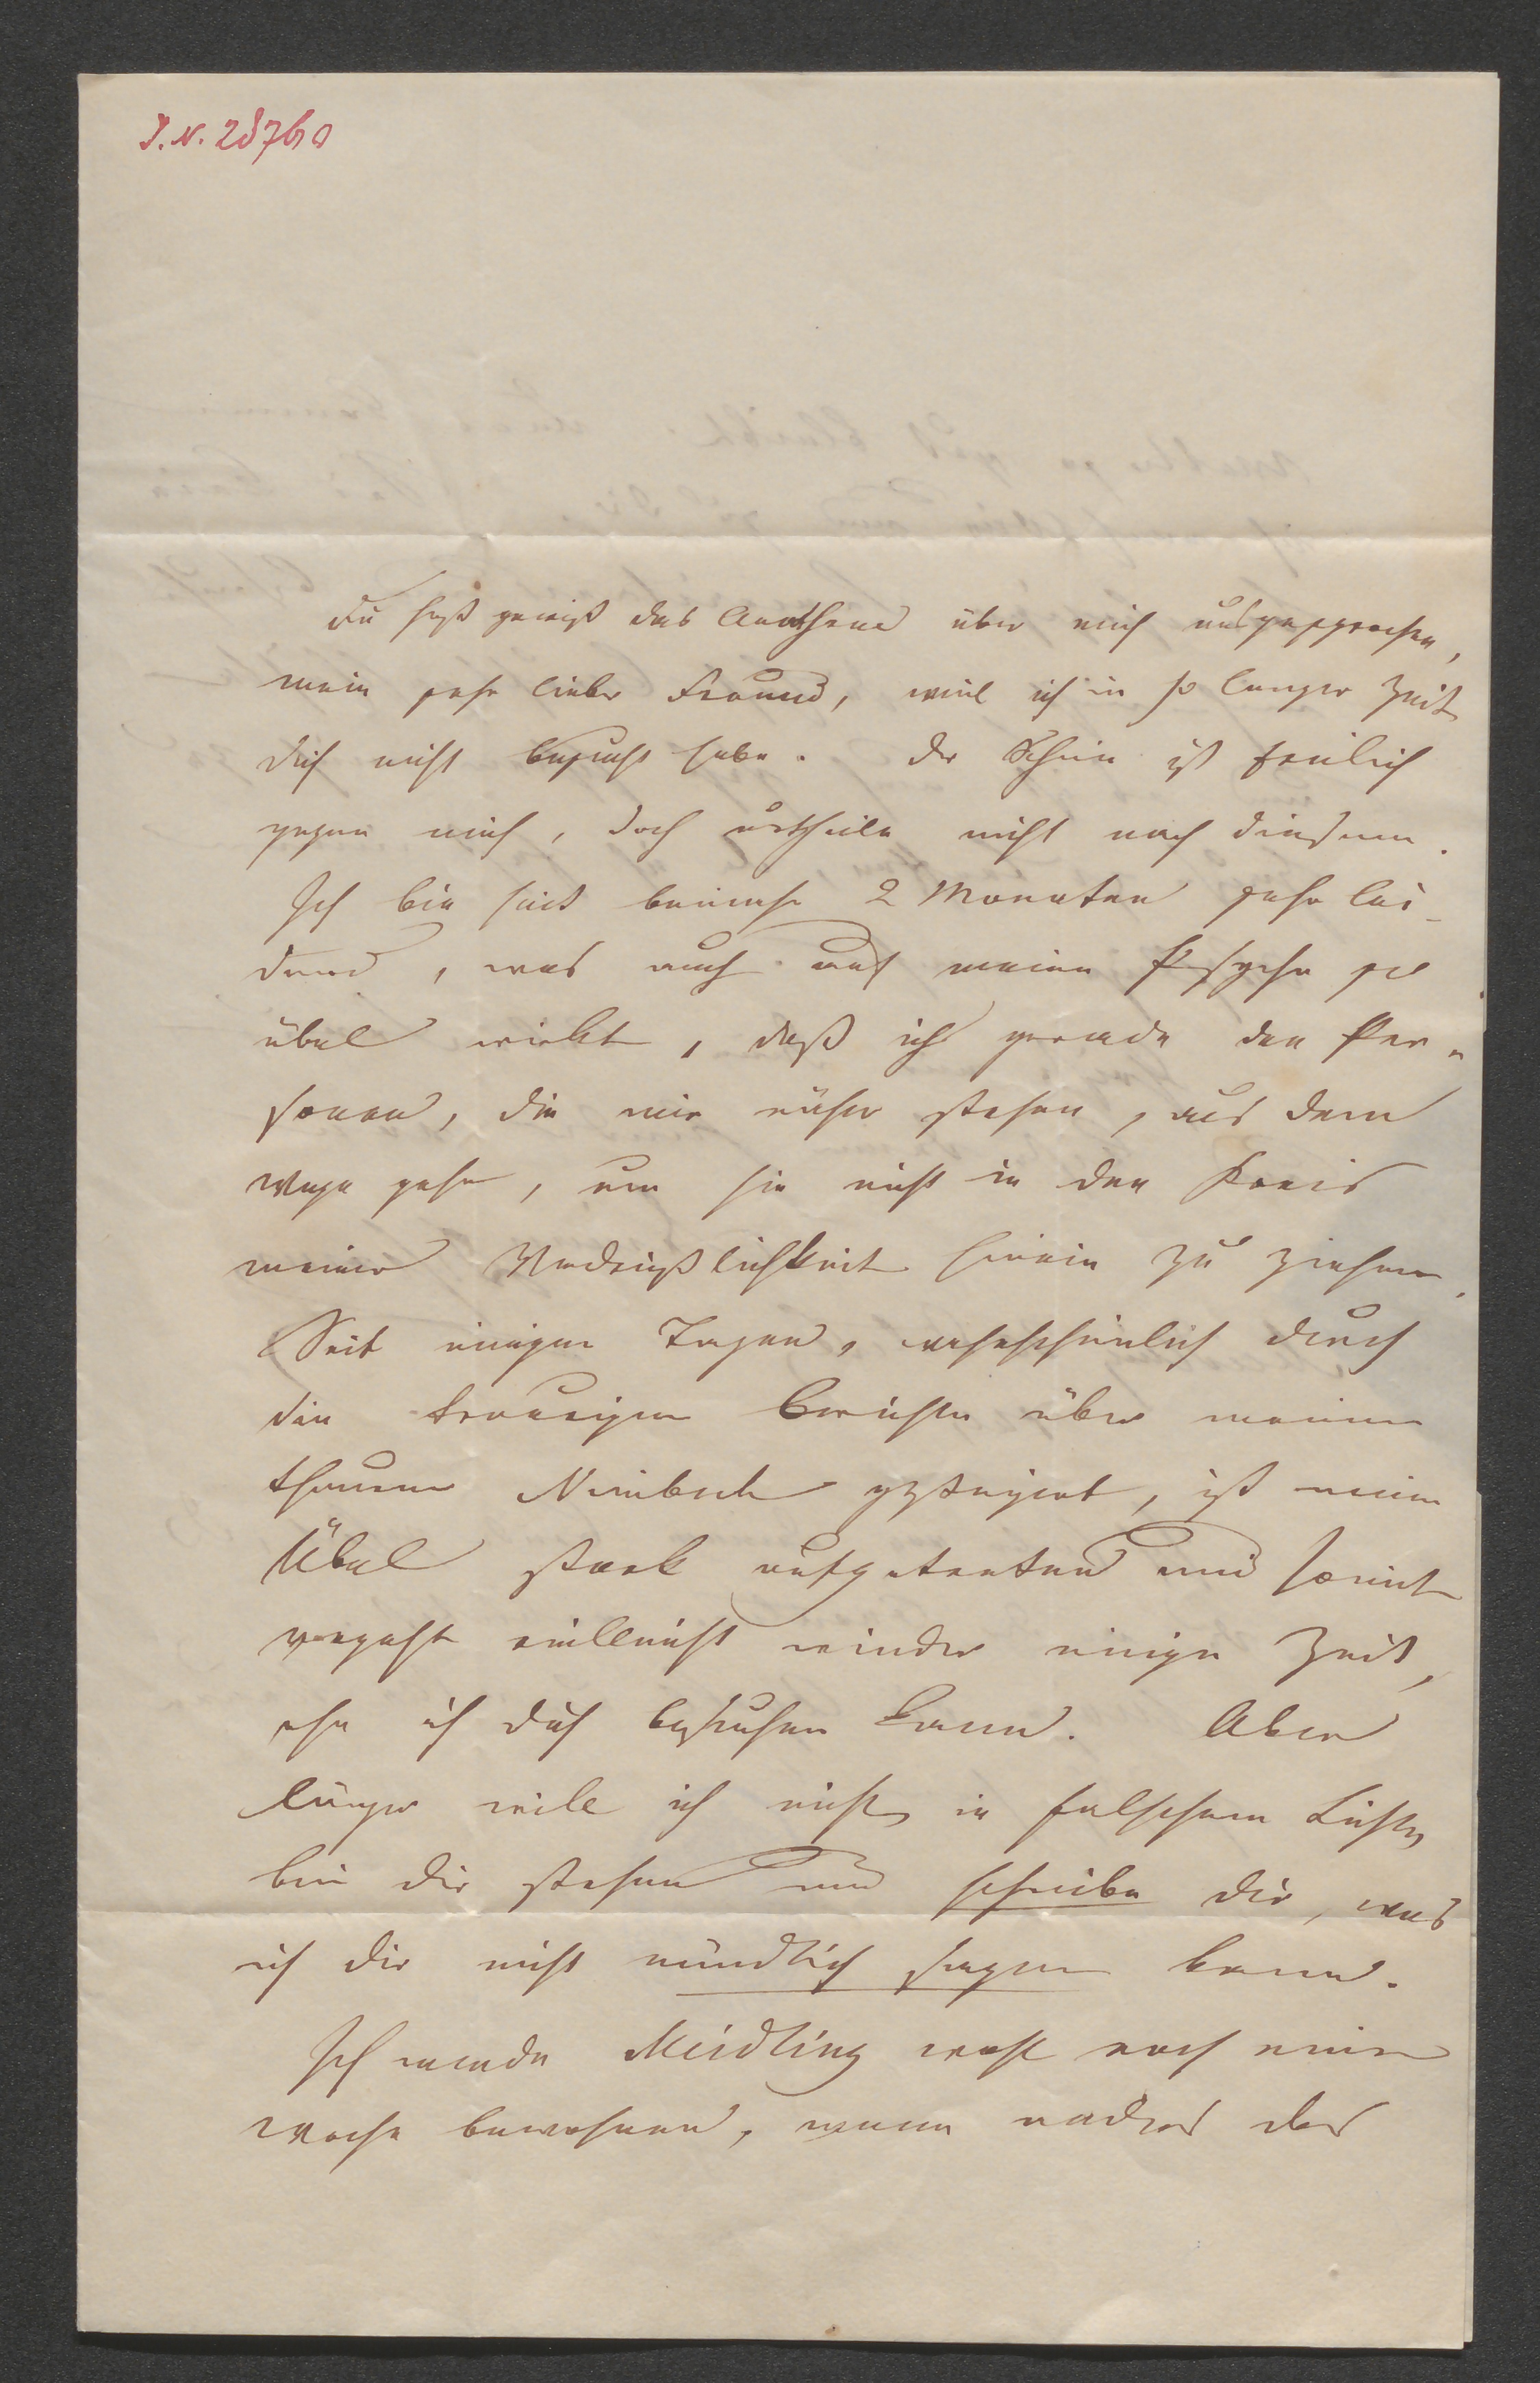 I.N. 28760
Du hast gewiß das Anathema über mich ausgesprochen,
mein sehr lieber Freund, weil ich in so langer Zeit
dich nicht besucht habe. Der Schein ist freilich
gegen mich, doch urtheile nicht nach diesem.
Ich bin seit beinahe 2 Monaten sehr lei-
dend, was auch auf meine Psyche so
übel wirkt, daß ich gerade den Per-
sonen, die mir näher stehen, aus dem
Wege gehe, um sie nicht in den Kreis
meiner Verdrießlichkeit hinein zu ziehen.
Seit einigen Tagen, wahrscheinlich durch
die traurigen Berichte über meinen
theuren Niembsch gesteigert, ist mein
Übel stark aufgetreten und somit
vergeht vielleicht wieder einige Zeit,
ehe ich dich besuchen kann. Aber
länger will ich nicht in falschem Lichte
bei dir stehen und schreibe dir, was
ich dir nicht mündlich sagen kann.
Ich werde Meidling wohl noch eine
Woche bewohnen, wenn anders das